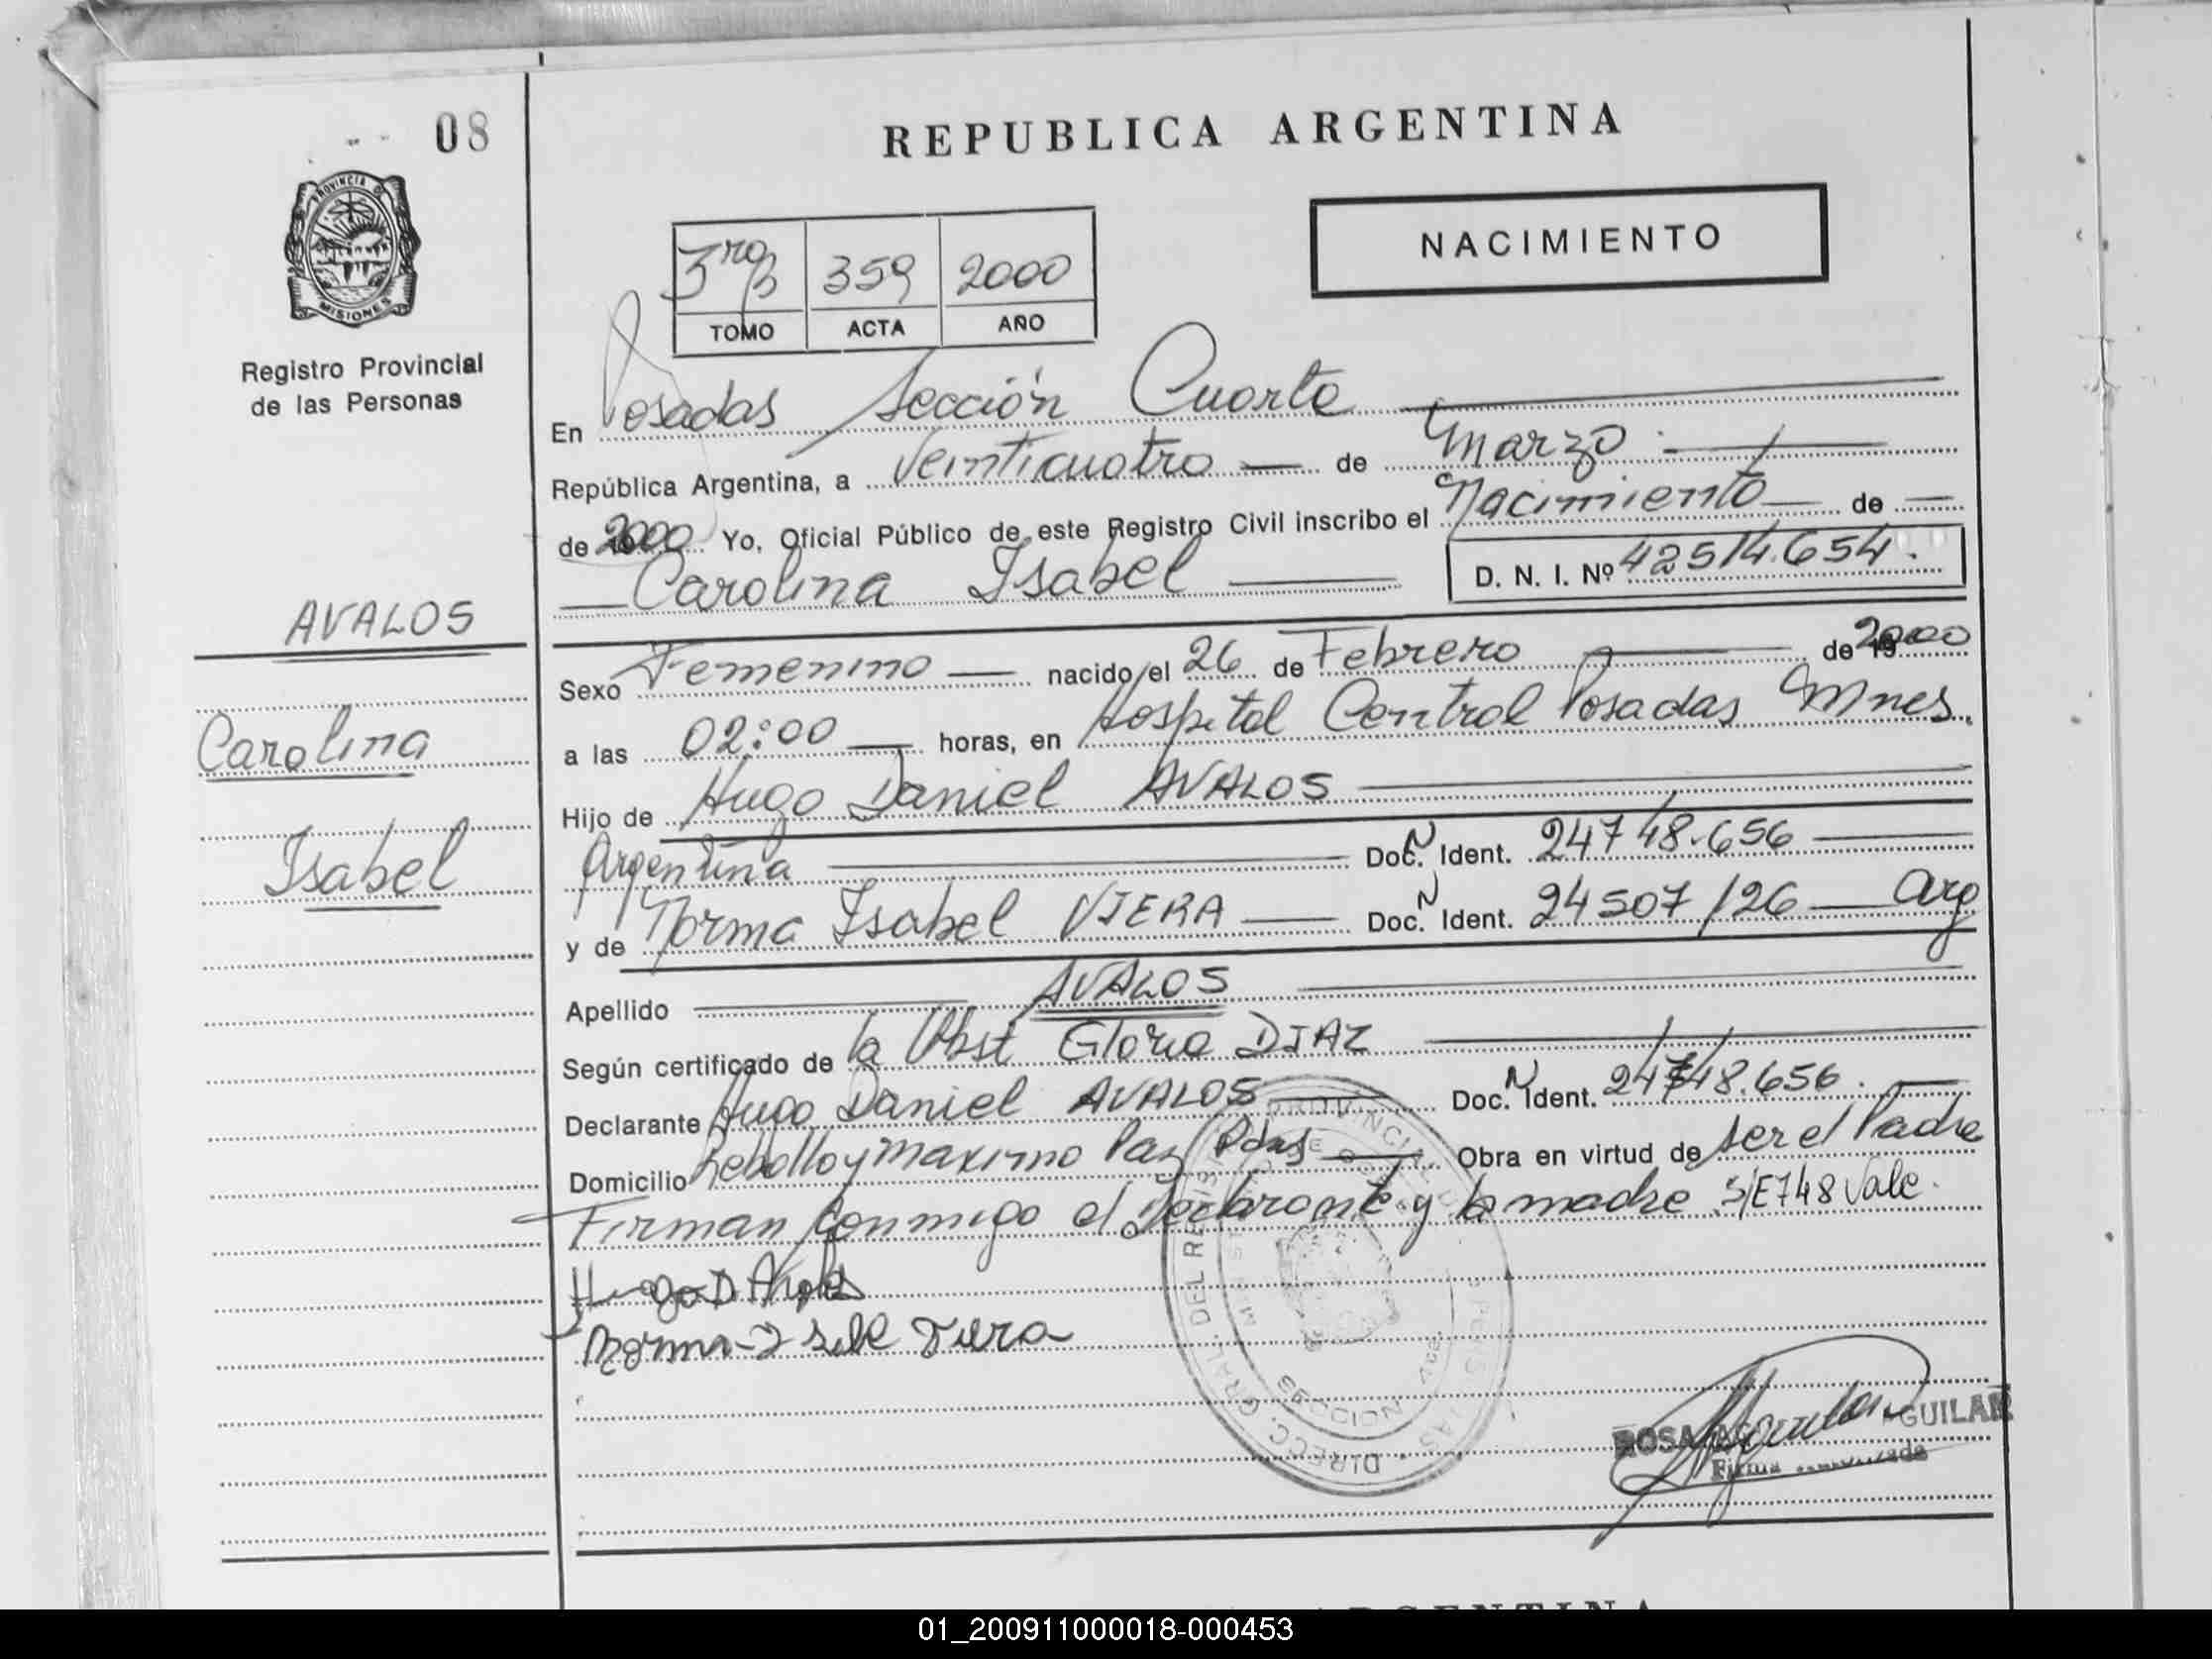 08
PROVINCIA DE
MISIONES
Registro Provincial
de las Personas
AVALOS
Carolina
Isabel
REPUBLICA ARGENTINA
NACIMIENTO
3ro 359 2000
TOMO ACTA AÑO
En Posadas Sección Cuarta
República Argentina, a Veinticuatro de Marzo
de 2000 Yo, Oficial Público de este Registro Civil inscribo el Nacimiento de
Carolina Isabel D. N. I. Nº 42514.654.
Sexo Femenino nacido el 26 de Febrero de 2000
a las 02:00 horas, en Hospital Central Posadas Mnes.
Hijo de Hugo Daniel AVALOS
Argentina Doc. N Ident. 24748.656
y de Norma Isabel VIERA Doc. N Ident. 24507126 Arg
Apellido AVALOS
Según certificado de la Obst Gloria DIAZ
Declarante Hugo Daniel AVALOS Doc. N Ident. 24748.656.
Domicilio Rebollo y Maximo Paz Pdas Obra en virtud de ser el Padre
Firman conmigo el Declarante y la madre S/E748 Vale.
Hugo D Avalos
ROSA AGUILAR
REPUBLICA ARGENTINA
01_200911000018-000453